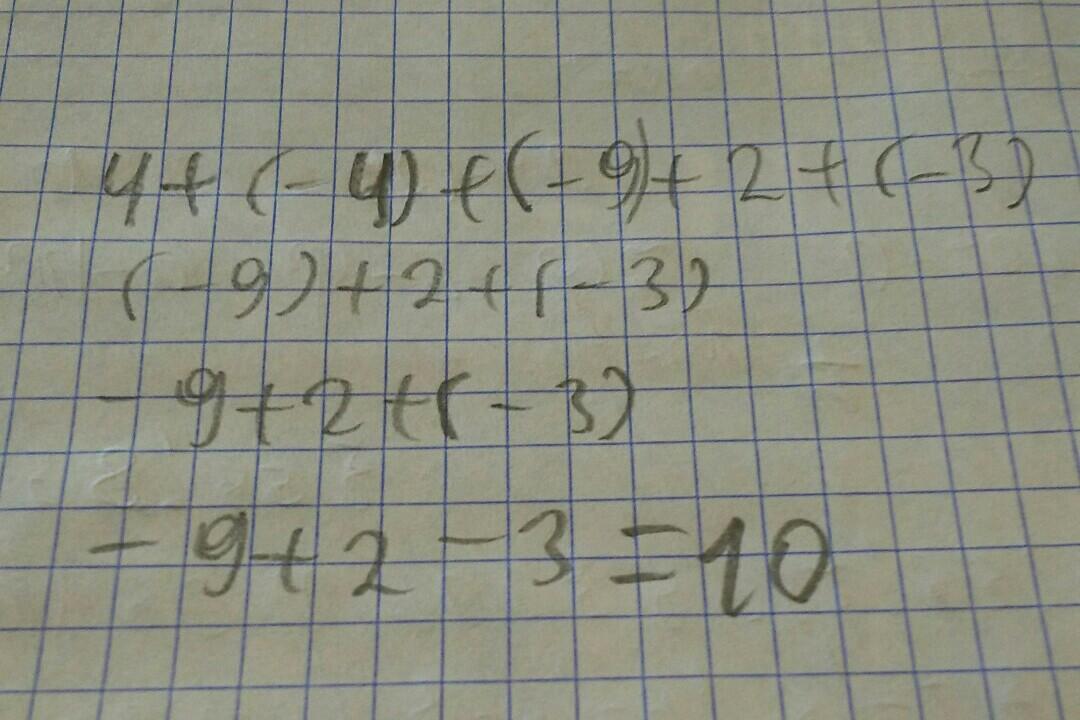 4+(-4)+(-9)+2+(-3)
(-9)+2+(-3)
-9+2+(-3)
-9+2-3=10